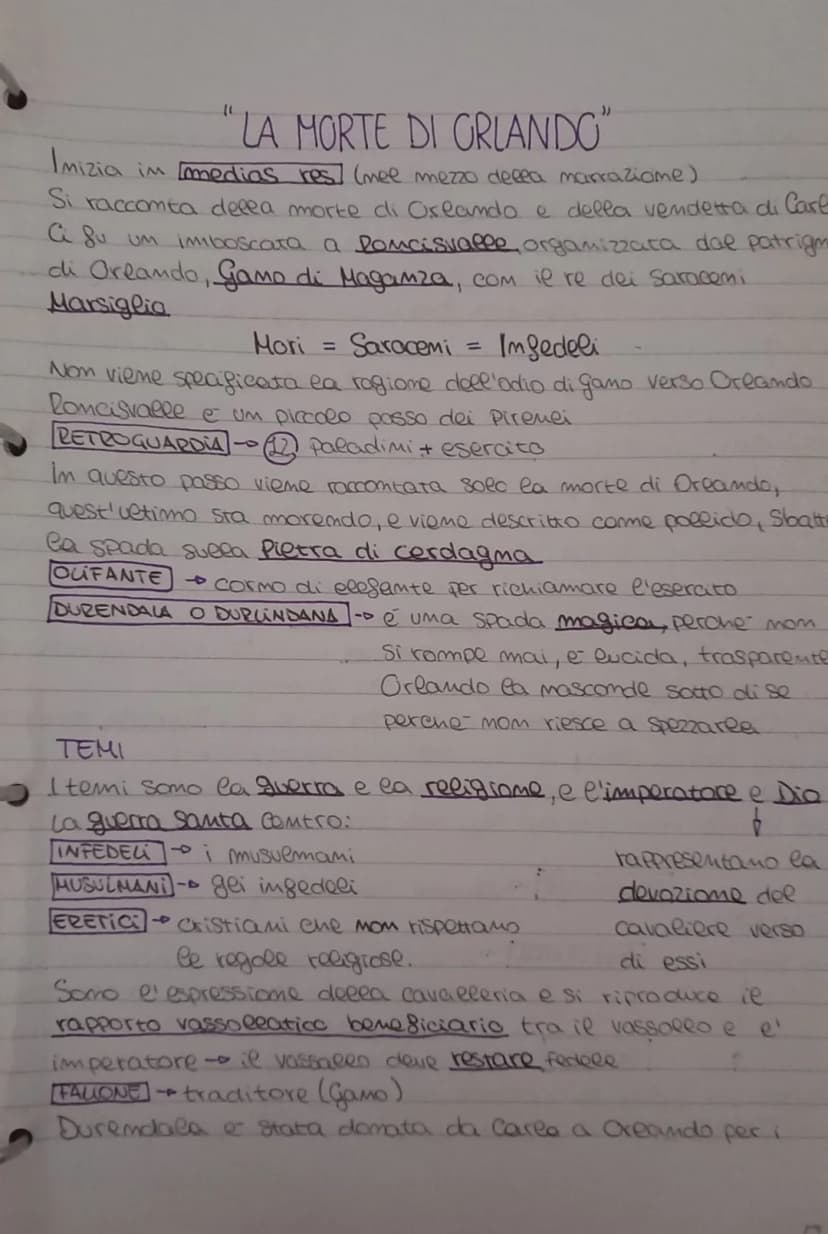 "LA MORTE DI ORLANDO"
Inizia in medias res (nel mezzo della narrazione)
Si racconta della morte di Orlando e della vendetta di Carl
Ci fu un imboscata a Roncisvalle, organizzata dal patrign
di Orlando, Gano di Maganza, con il re dei saraceni
Marsiglio
Mori = Saraceni = Infedeli
Non viene specificata la ragione dell'odio di gano verso Orlando
Roncisvalle è un piccolo passo dei Pirenei
RETROGUARDIA → 12 paladini + esercito
In questo passo viene raccontata solo la morte di Orlando,
quest'ultimo sta morendo, e viene descritto come pallido, Sbatt
la spada sulla Pietra di cerdagna
OLIFANTE → corno di elefante per richiamare l'esercito
DURENDALA O DURLINDANA → è una spada magica, perchè non
si rompe mai, è lucida, trasparente
Orlando la nasconde sotto di se
perchè non riesce a spezzarla
TEMI
I temi sono la guerra e la religione, e l'imperatore e Dio
La guerra santa contro: ↓
INFEDELI → i musulmani rappresentano la
MUSULMANI → gli infedeli devozione del
ERETICI → cristiani che non rispettano cavaliere verso
le regole religiose. di essi
Sono l'espressione della cavalleria e si riproduce il
rapporto vassallatico beneficiario tra il vassallo e l'
imperatore → il vassallo deve restare fedele
FALLONE → traditore (Gano)
Durendala è stata donata da Carlo a Orlando per i